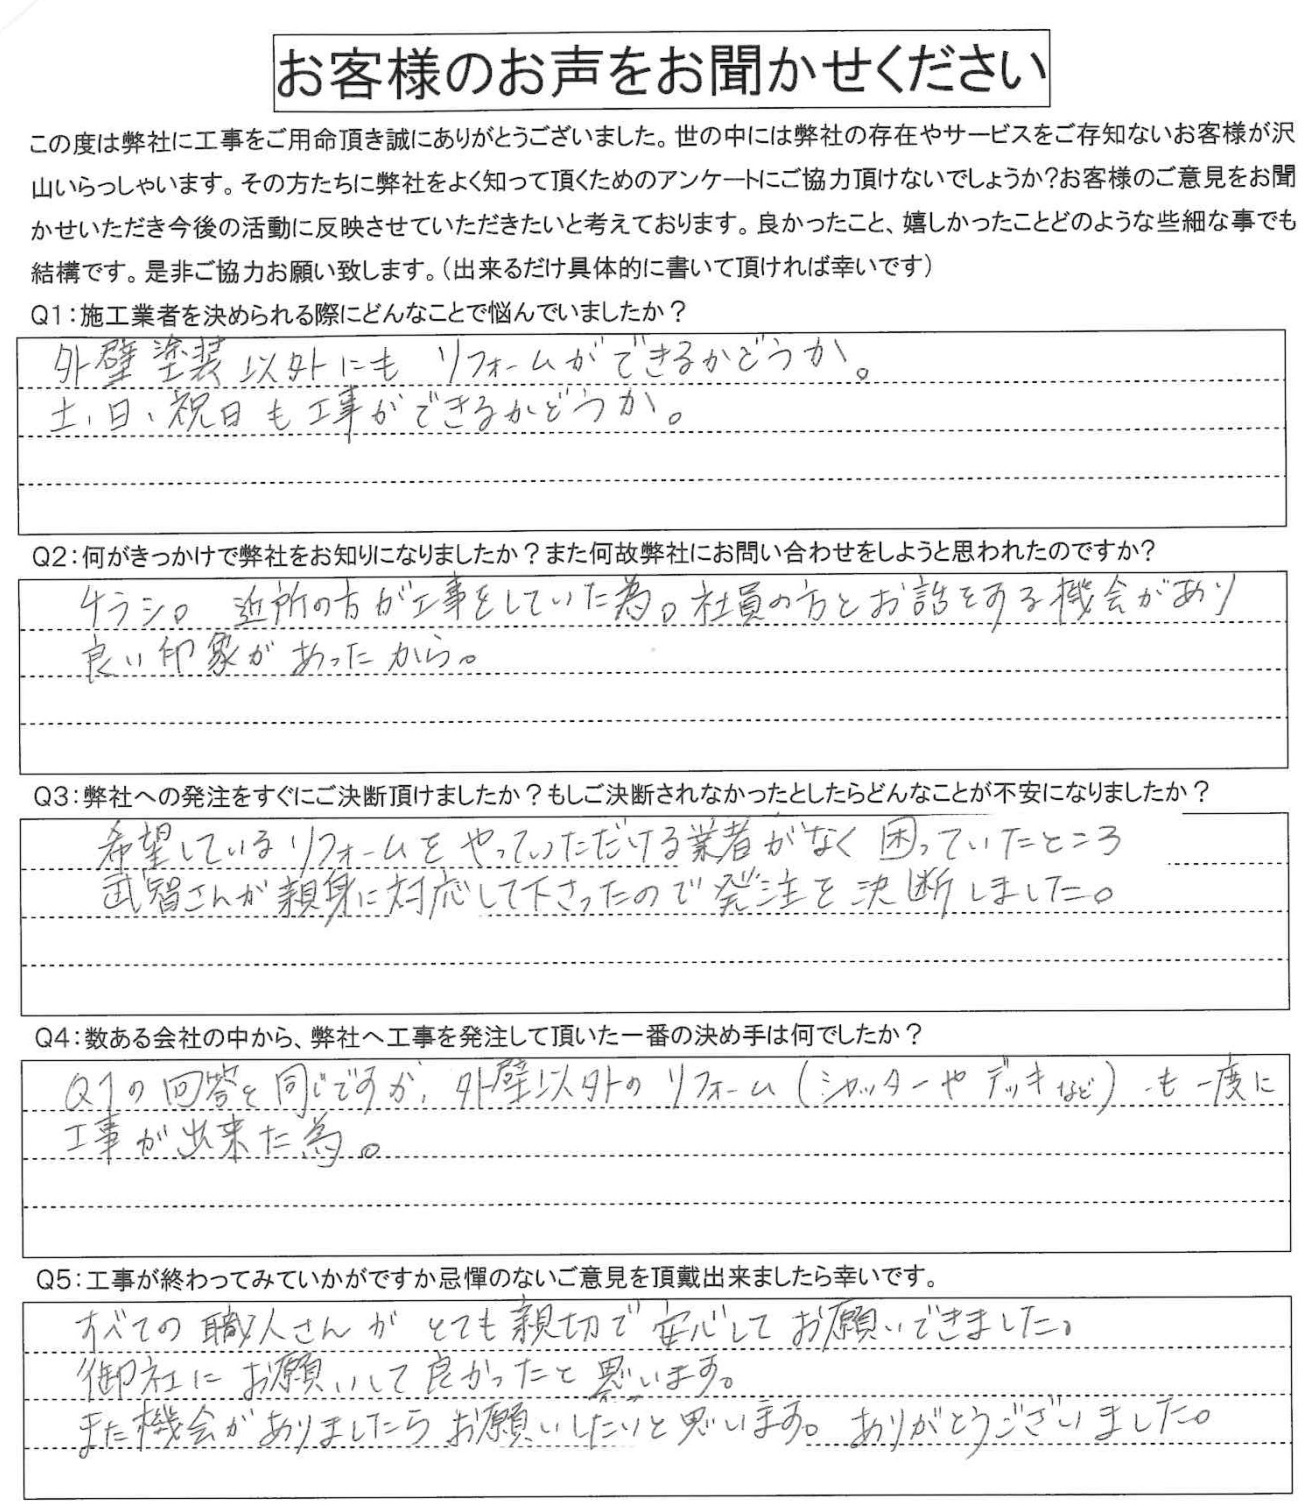 お客様のお声をお聞かせください
この度は弊社に工事をご用命頂き誠にありがとうございました。世の中には弊社の存在やサービスをご存知ないお客様が沢
山いらっしゃいます。その方たちに弊社をよく知って頂くためのアンケートにご協力頂けないでしょうか?お客様のご意見をお聞
かせいただき今後の活動に反映させていただきたいと考えております。良かったこと、嬉しかったことどのような些細な事でも
結構です。是非ご協力お願い致します。(出来るだけ具体的に書いて頂ければ幸いです)
Q1:施工業者を決められる際にどんなことで悩んでいましたか?
外壁塗装以外にも リフォームができるかどうか。
土、日、祝日も工事ができるかどうか。
Q2:何がきっかけで弊社をお知りになりましたか?また何故弊社にお問い合わせをしようと思われたのですか?
チラシ。 近所の方が工事をしていた為。社員の方とお話をする機会があり
良い印象があったから。
Q3:弊社への発注をすぐにご決断頂けましたか?もしご決断されなかったとしたらどんなことが不安になりましたか?
希望しているリフォームをやっていただける業者がなく困っていたところ
武智さんが親身に対応して下さったので発注を決断しました。
Q4:数ある会社の中から、弊社へ工事を発注して頂いた一番の決め手は何でしたか?
Q1の回答と同じですが、外壁以外のリフォーム(シャッターやデッキなど)も一度に
工事が出来た為。
Q5:工事が終わってみていかがですか忌憚のないご意見を頂戴出来ましたら幸いです。
すべての職人さんがとても親切で安心してお願いできました。
御社にお願いして良かったと思います。
また機会がありましたらお願いしたいと思います。ありがとうございました。